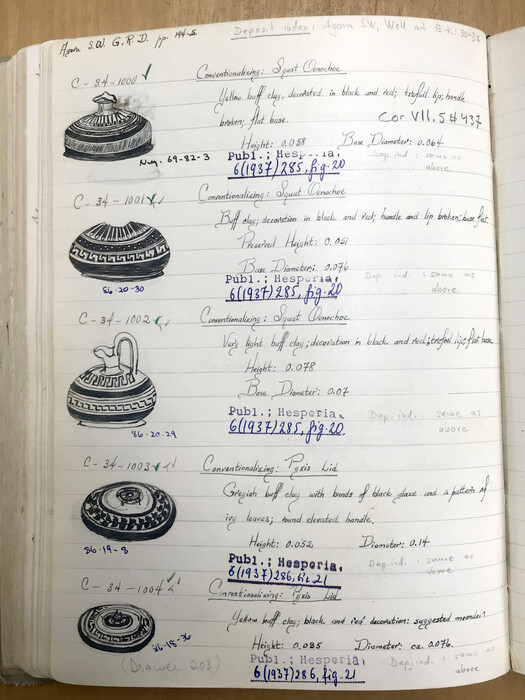 Agora S.W. G.R.D. pp. 194-5.
Deposit index: Agora SW, Well at E-K: 30-37
C-34-1000 ✓
Conventionalizing: Squat Oenochoe
Yellow buff clay, decorated in black and red; trefoil lip; handle
broken; flat base.
Cor VII.5 # 437
Height: 0.058 Base Diameter: 0.064
Neg. 69-82-3
Publ.; Hesperia,
6(1937)285, fig.20
Dep. ind: same as
above
C-34-1001
Conventionalizing: Squat Oenochoe
Buff clay; decoration in black and red; handle and lip broken; base flat.
Preserved Height: 0.051
Base Diameter: 0.076
86-20-30
Publ.; Hesperia
6(1937)285, fig.20
Dep. ind: same as
above
C-34-1002
Conventionalizing: Squat Oenochoe
Very light buff clay; decoration in black and red; trefoil lip; flat base
Height: 0.078
Base Diameter: 0.07
86-20-29
Publ.; Hesperia,
6(1937)285, fig.20
Dep. ind: same as
above
C-34-1003
Conventionalizing: Pyxis Lid
Greyish buff clay with bands of black glaze and a pattern of
ivy leaves; round elevated handle.
Height: 0.032 Diameter: 0.14
86-19-8
Publ.; Hesperia,
6(1937)286, fig.21
Dep.ind: same as
above
C-34-1004
Conventionalizing: Pyxis Lid
Yellow buff clay; black and red decoration: suggested meander.
86-18-36
Height: 0.035 Diameter: ca. 0.076.
(Drawer 203)
Publ.; Hesperia,
6(1937)286, fig.21
Dep.ind: same as
above